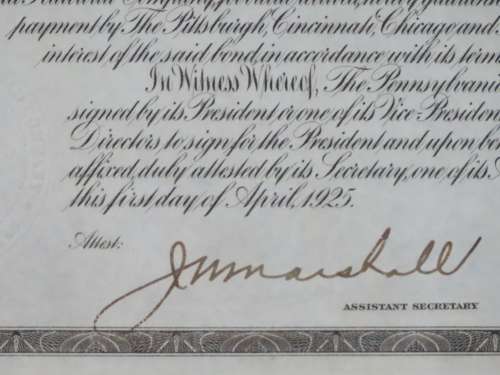 Company, for value received, hereby guarantees
payment by The Pittsburgh, Cincinnati, Chicago and
interest of the said bond, in accordance with its term
In Witness Whereof, The Pennsylvani
signed by its President or one of its Vice-Presiden
Directors to sign for the President and upon bo
affixed, duly attested by its Secretary, one of its A
this first day of April, 1925.
Attest:
J W Marshall
ASSISTANT SECRETARY